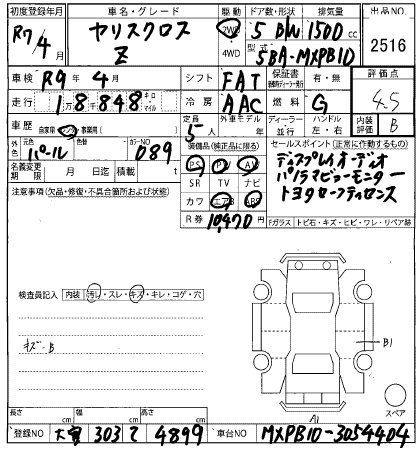 初度登録年月 車名・グレード 駆動 ドア数・形状 排気量 出品NO
R7/4月 ヤリスクロス Z 2WD 4WD 5 BW 1500 cc 2516
型式 5BA-MXPB10
車検 R9年4月 シフト FAT 保証書 有・無 評価点 4.5
走行 18848 キロ マイル 冷房 AAC 燃料 G
車歴 自家用 事業用( ) 定員 5人 外車モデル 年 ディーラー 並行 ハンドル 左・右 内装評価 B
外色 元色 パール 色替 カラーNO 089
装備品(純正品に限る) セールスポイント(正常に作動するもの)
名義変更期限 月 日迄 積載 t
PS PW AW ディスプレイオーディオ
SR TV ナビ パノラマビューモニター
注意事項(欠品・修復・不具合箇所および状態)
カワ エアB ABS トヨタセーフティセンス
R券 10,470円
Fガラス トビ石・キズ・ヒビ・ワレ・リペア跡
検査員記入 内装 汚レ・スレ・キズ・キレ・コゲ・穴
キズ-B
B1
A1
スペア
長さ cm 幅 cm 高さ cm
登録NO 大宮 303 て 4899 車台NO MXPB10-3054404